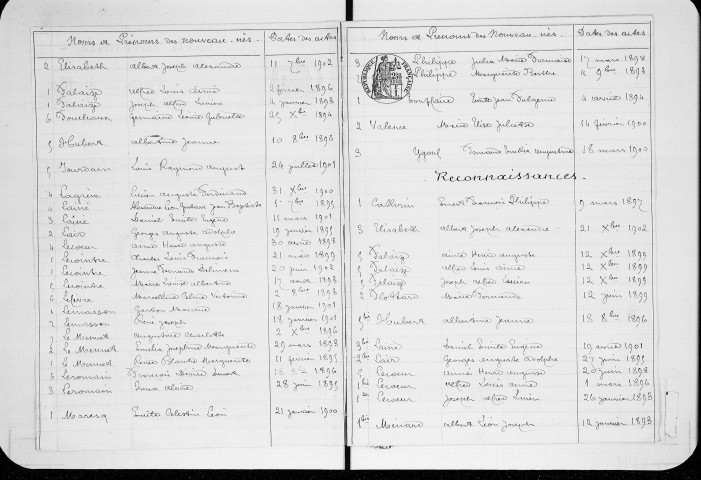 Noms & Prénoms des nouveau-nés. Dates des actes
2 Elisabeth Albert Joseph Alexandre 11 7bre 1902
1 Falaize Alfred Louis Aimé 2 février 1896
1 Falaize Joseph Alfred Lucien 4 janvier 1893
6 Germaine Gabrielle 25 Xbre 1894
5 Hubert Albertine Jeanne 10 8bre 1896
5 Jourdain Louis Raymond August 24 juillet 1901
4 Lagrève Lucien Auguste Ferdinand 31 Xbre 1900
4 Lainé Gustave Jean Baptiste 1895
3 Lainé Daniel Eugène 11 mars 1901
2 Lair Georges Auguste Adolphe 19 janvier 1895
4 Lecoeur Aimé Henri Auguste 30 avril 1898
1 Lecointre Charles Louis François 21 mars 1899
1 Lecointre Jeanne 20 juin 1902
5 Lecointre Marie Louise Albertine 17 août 1893
6 Lefèvre Marcelline Céline Victorine 2 8bre 1893
1 Lemasson Gaston Maurice 18 janvier 1901
2 Lemasson René Joseph 18 janvier 1901
7 Le Mennet Augustine Charlotte 2 Xbre 1896
2 Le Mennet Emilie Joséphine Marguerite 29 mars 1898
1 Le Mennet Blanche Marguerite 11 février 1895
6 Leromain François Désiré 1896
3 Leromain 28 juin 1895
1 Maresq Emile Célestin Léon 21 janvier 1900
Noms & Prénoms des Nouveau-nés. Dates des actes
8 Philippe Julia Marie 17 mars 1898
7 Philippe Marguerite 4 9bre 1893
RÉPUBLIQUE FRANÇAISE
1 Jean 4 avril 1894
2 Valence Marie Elise Juliette 14 février 1900
3 Ygouf Emilie Augustine 18 mars 1900
Reconnaissances.
1 Ernest François Philippe 9 mars 1897
3 Elisabeth Albert Joseph Alexandre 21 Xbre 1902
5 Falaize Aimé Henri Auguste 12 Xbre 1899
5 Falaize Alfred Louis Aimé 12 Xbre 1899
5 Falaize Joseph Alfred Lucien 12 Xbre 1899
2 Marie 12 juin 1899
5bis Hubert Albertine Jeanne 18 8bre 1896
3bis Lainé Daniel Eugène 19 avril 1901
2bis Lair Georges Auguste Adolphe 27 juin 1895
5 Lecoeur Aimé Henri Auguste 20 juin 1898
1bis Lecoeur Alfred Louis Aimé 1 mars 1896
1bis Lecoeur Joseph Alfred Lucien 26 janvier 1893
1bis Menard Albert Léon Joseph 12 janvier 1893